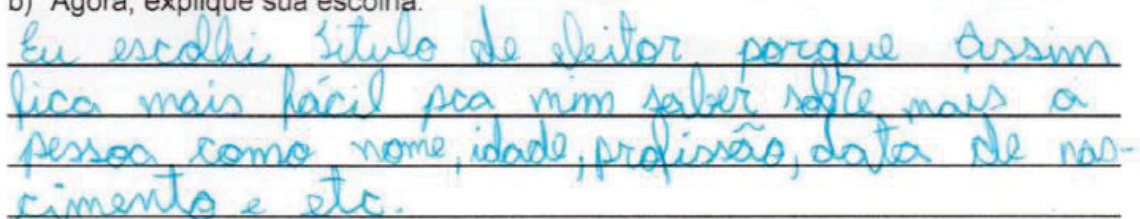 b) Agora, explique sua escolha.
Eu escolhi título de eleitor porque assim
fica mais fácil pra mim saber sobre mais a
pessoa como nome, idade, profissão, data de nas-
cimento e etc.